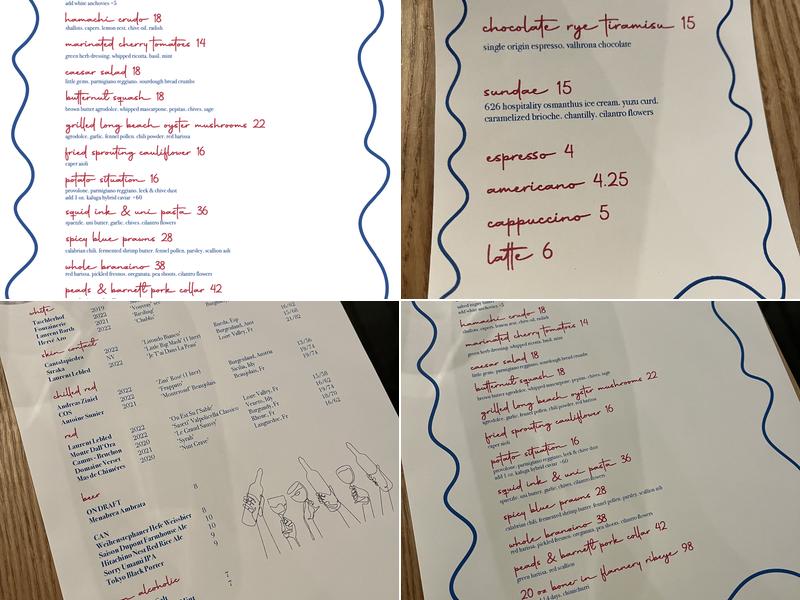 add white anchovies +5
hamachi crudo 18
shallots. capers. lemon zest. chive oil. radish
marinated cherry tomatoes 14
green herb dressing. whipped ricotta. basil. mint
caesar salad 18
little gems. parmigiano reggiano. sourdough bread crumbs
butternut squash 18
brown butter agrodolce. whipped mascarpone. pepitas. chives. sage
grilled long beach oyster mushrooms 22
agrodolce. garlic. fennel pollen. chili powder. red harissa
fried sprouting cauliflower 16
caper aioli
potato situation 16
provolone. parmigiano reggiano. leek & chive dust
add 1 oz. kaluga hybrid caviar +60
squid ink & uni pasta 36
spaezle. uni butter. garlic. chives. cilantro flowers
spicy blue prawns 28
calabrian chili. fermented shrimp butter. fennel pollen. parsley. scallion ash
whole branzino 38
red harissa. pickled fresnos. oreganata. pea shoots. cilantro flowers
peads & barnett pork collar 42
chocolate rye tiramisu 15
single origin espresso. valhrona chocolate
sundae 15
626 hospitality osmanthus ice cream. yuzu curd.
caramelized brioche. chantilly. cilantro flowers
espresso 4
americano 4.25
cappuccino 5
latte 6
white
Tuschlerhof 2019
Fontainerie 2022 "Vouvray sec"
Laurent Barth 2021 "Riesling"
Hervé Azo 2022 "Chablis" 16/62
15/68
21/82
skin contact
Cantalapiedra 2022 "Lirondo Blanco" Rueda, Esp
Straka NV "Little Big Mash" (1 liter) Burgenland, Aust
Laurent Lebled 2022 "Je T'ai Dans La Peau" Loire Valley, Fr
chilled red
Andreas Ziniel 2022 "Zini" Rose (1 liter) Burgenland, Austria 15/56
COS 2022 "Frappato" Sicilia, Itly 19/74
Antoine Sunier 2021 "Monternot" Beaujolais Beaujolais, Fr 19/74
red
Laurent Lebled 2022 "On Est Su'l Sable" Loire Valley, Fr 15/58
Monte Dall'Ora 2022 "Saseti" Valpolicella Classico Veneto, Itly 16/62
Camus - Bruchon 2022 "Le Grand Saussy" Burgundy, Fr 19/74
Domaine Verset 2020 "Syrah" Rhone, Fr 18/70
Mas de Chimères 2020 "Nuit Grave" Languedoc, Fr 16/62
beer
ON DRAFT
Menabrea Ambrata 8
CAN
Weihenstephaner Hefe Weissbier 8
Saison Dupont Farmhouse Ale 10
Hitachino Nest Red Rice Ale 10
Sorry Umami IPA 9
Tokyo Black Porter 9
alcoholic
7
7
add white anchovies +5
hamachi crudo 18
shallots. capers. lemon zest. chive oil. radish
marinated cherry tomatoes 14
green herb dressing. whipped ricotta. basil. mint
caesar salad 18
little gems. parmigiano reggiano. sourdough bread crumbs
butternut squash 18
brown butter agrodolce. whipped mascarpone. pepitas. chives. sage
grilled long beach oyster mushrooms 22
agrodolce. garlic. fennel pollen. chili powder. red harissa
fried sprouting cauliflower 16
caper aioli
potato situation 16
provolone. parmigiano reggiano. leek & chive dust
add 1 oz. kaluga hybrid caviar +60
squid ink & uni pasta 36
spaezle. uni butter. garlic. chives. cilantro flowers
spicy blue prawns 28
calabrian chili. fermented shrimp butter. fennel pollen. parsley. scallion ash
whole branzino 38
red harissa. pickled fresnos. oreganata. pea shoots. cilantro flowers
peads & barnett pork collar 42
green harissa. red scallion
20 oz bone in flannery ribeye 98
days. chimichurri